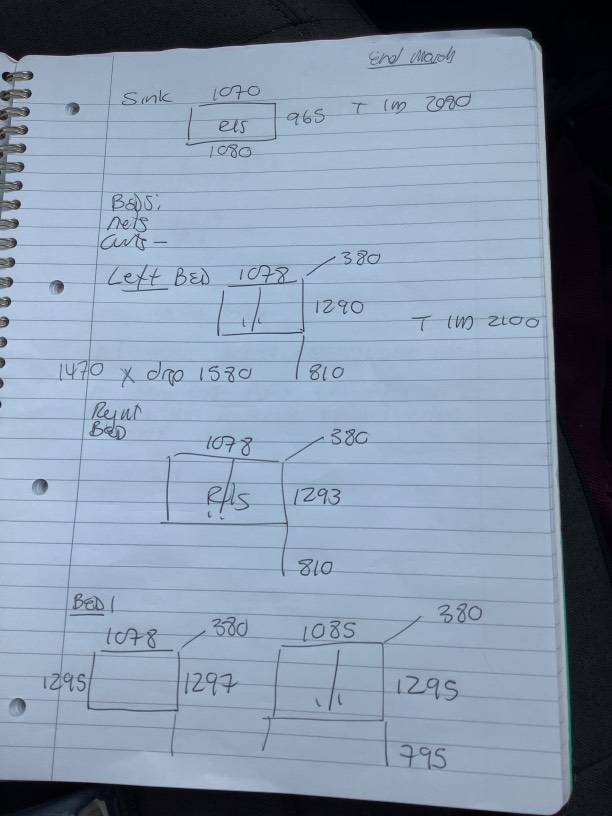 End March
Sink 1070
els 965 T 1m 2090
1080
BEDS:
nets
curts -
Left BED 1078 380
1290
T 1m 2100
1470 x drop 1580 810
Right
BED
1078 380
R/ls 1293
810
BED 1
1078 380 1085 380
1295 1297 1295
795